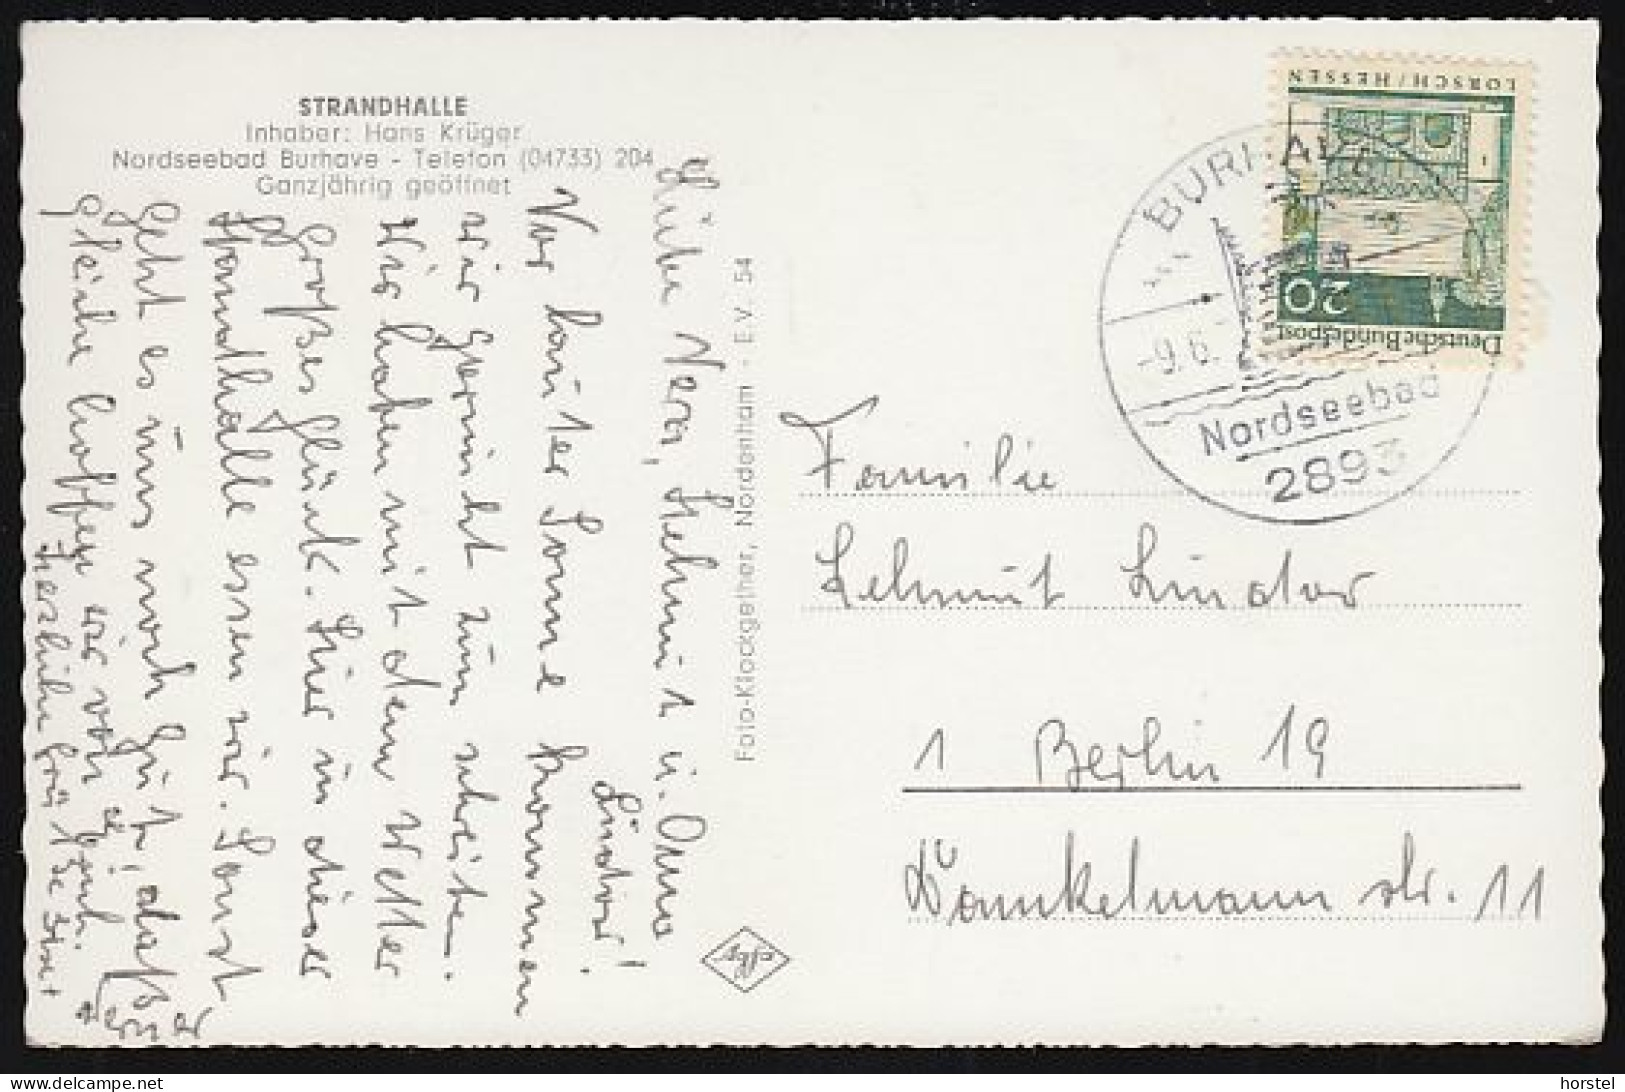 STRANDHALLE
Inhaber: Hans Krüger
Nordseebad Burhave - Telefon (04733) 204
Ganzjährig geöffnet
Liebe Vera, Helmut u. Oma
Lindor!
Vor lauter Sonne kommen
wir garnicht zum schreiben.
Wir haben mit dem Wetter
großes Glück. Hier in dieser
Strandhalle essen wir. Sonst
geht es uns noch gut, daß
gleiche hoffen wir von euch.
Herzliche Grüße
Foto-Klodgether, Nordenham - E.V. 54
LORSCH/HESSEN
20
Deutsche Bundespost
BURHAVE
-9.6.
Nordseebad
2893
Familie
Helmut Lindor
1 Berlin 19
Danckelmannstr. 11
horstel